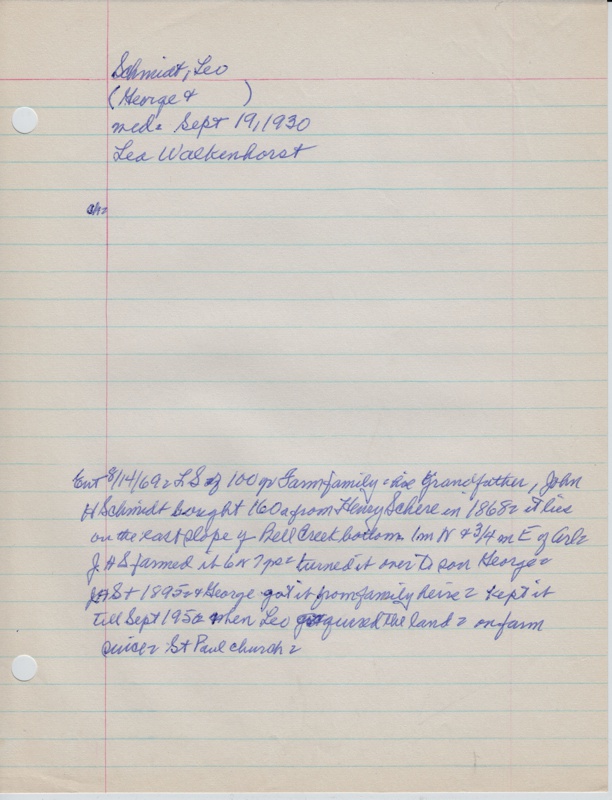 Schmidt, Leo
(George &      )
med= Sept 19, 1930
Lea Walkenhorst
ch=
Ent 8/14/69= LS of 100 yr Farm family = his Grandfather, John
H Schmidt bought 160a from Henry Schere in 1868= it lies
on the east slope of Bell Creek bottom 1m N & 3/4 m E of Arl=
J.H S farmed it 6 or 7 yrs= turned it over to son George=
JHS + 1895= & George got it from family heirs= kept it
till Sept 1950 when Leo quired the land= on farm
since= St Paul church=